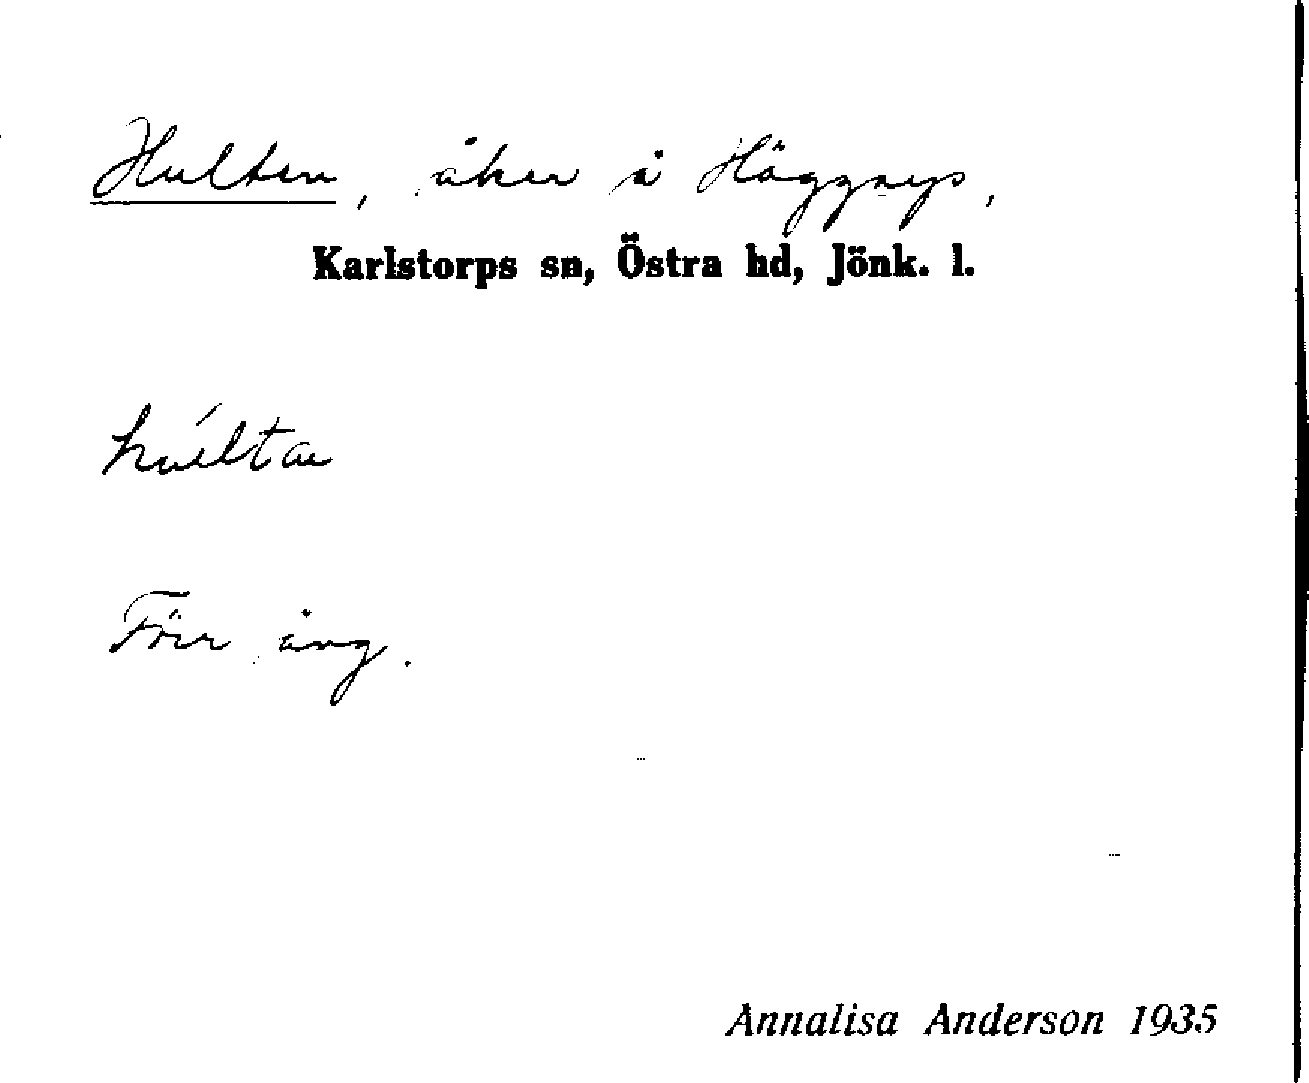 Hulten, åker å Häggnys,
Karlstorps sn, Östra hd, Jönk. l.
Förr äng.
Annalisa Anderson 1935